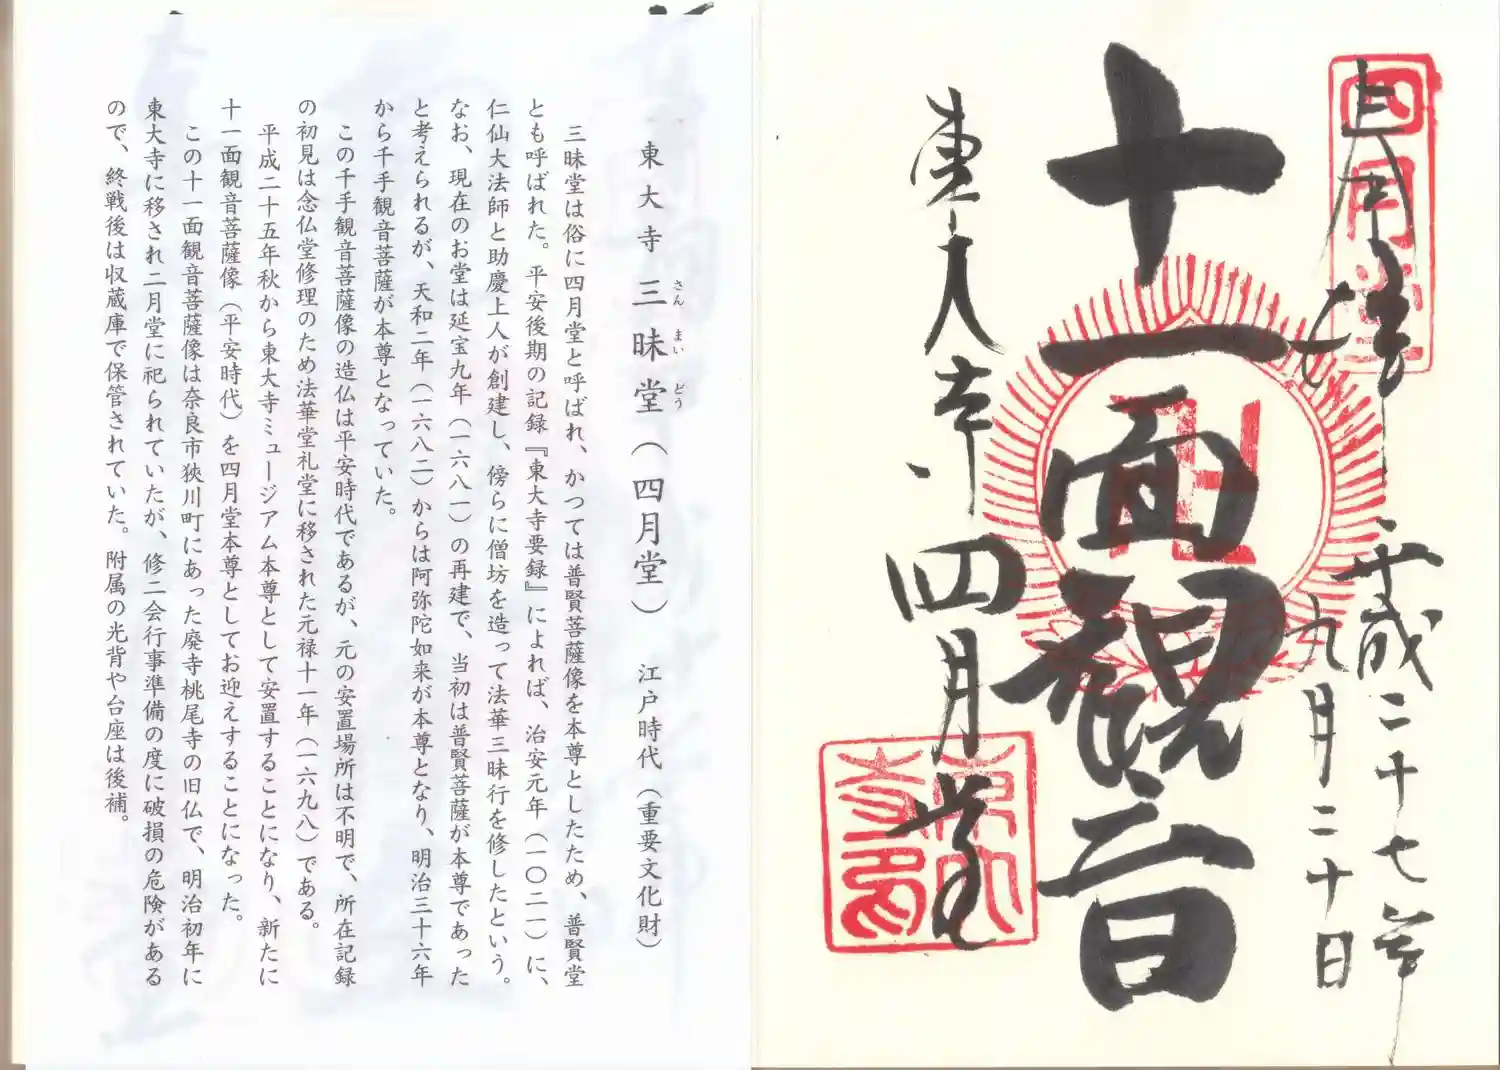 四月堂
上司拝
平成二十七年
九月二十日
十一面観音
東大寺
四月堂
東大寺印
東大寺三昧堂（四月堂）　江戸時代（重要文化財）
さんまいどう
三昧堂は俗に四月堂と呼ばれ、かつては普賢菩薩像を本尊としたため、普賢堂
とも呼ばれた。平安後期の記録『東大寺要録』によれば、治安元年（一〇二一）に、
仁仙大法師と助慶上人が創建し、傍らに僧坊を造って法華三昧行を修したという。
なお、現在のお堂は延宝九年（一六八一）の再建で、当初は普賢菩薩が本尊であった
と考えられるが、天和二年（一六八二）からは阿弥陀如来が本尊となり、明治三十六年
から千手観音菩薩が本尊となっていた。
この千手観音菩薩像の造仏は平安時代であるが、元の安置場所は不明で、所在記録
の初見は念仏堂修理のため法華堂礼堂に移された元禄十一年（一六九八）である。
平成二十五年秋から東大寺ミュージアム本尊として安置することになり、新たに
十一面観音菩薩像（平安時代）を四月堂本尊としてお迎えすることになった。
この十一面観音菩薩像は奈良市狹川町にあった廃寺桃尾寺の旧仏で、明治初年に
東大寺に移され二月堂に祀られていたが、修二会行事準備の度に破損の危険がある
ので、終戦後は収蔵庫で保管されていた。附属の光背や台座は後補。